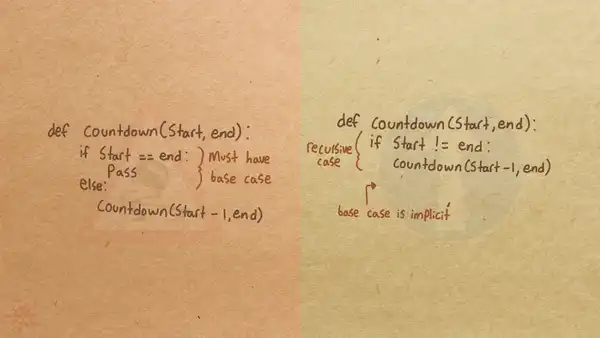 def Countdown(Start, end):
if Start == end:
Pass
else:
Countdown(Start - 1, end)
Must have
base case
def Countdown(Start, end):
if Start != end:
Countdown(Start-1, end)
recursive
case
base case is implicit